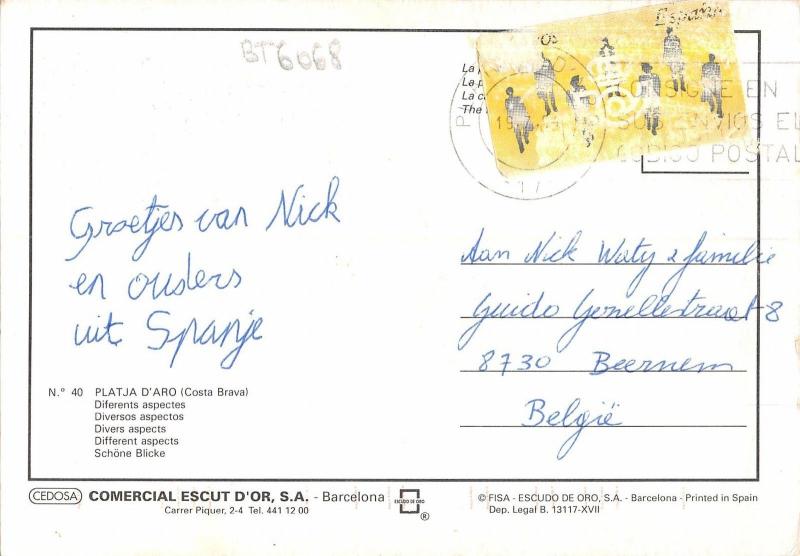 BT6068
España
CONSIGNE EN
SUS ENVIOS EL
CODIGO POSTAL
Groetjes van Nick
en ouders
uit Spanje
Aan Nick Waty & familie
Guido Gezellestraat 8
8730 Beernem
België
N.º 40 PLATJA D'ARO (Costa Brava)
Diferents aspectes
Diversos aspectos
Divers aspects
Different aspects
Schöne Blicke
CEDOSA COMERCIAL ESCUT D'OR, S.A. - Barcelona
Carrer Piquer, 2-4 Tel. 441 12 00
ESCUDO DE ORO
®
© FISA - ESCUDO DE ORO, S.A. - Barcelona - Printed in Spain
Dep. Legal B. 13117-XVII